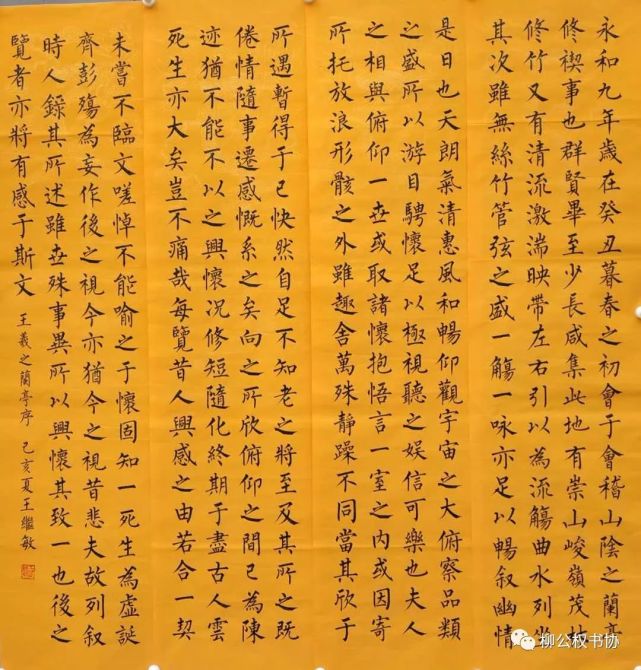 永和九年歲在癸丑暮春之初會于會稽山陰之蘭亭
修禊事也群賢畢至少長咸集此地有崇山峻嶺茂林
修竹又有清流激湍映帶左右引以為流觴曲水列坐
其次雖無絲竹管弦之盛一觴一咏亦足以暢叙幽情
是日也天朗氣清惠風和暢仰觀宇宙之大俯察品類
之盛所以游目騁懷足以極視聽之娱信可樂也夫人
之相與俯仰一世或取諸懷抱悟言一室之内或因寄
所托放浪形骸之外雖趣舍萬殊静躁不同當其欣于
所遇暫得于己快然自足不知老之將至及其所之既
倦情隨事遷感慨系之矣向之所欣俯仰之間已為陳
迹猶不能不以之興懷况修短隨化終期于盡古人雲
死生亦大矣豈不痛哉每覽昔人興感之由若合一契
未嘗不臨文嗟悼不能喻之于懷固知一死生為虛誕
齊彭殤為妄作後之視今亦猶今之視昔悲夫故列叙
時人錄其所述雖世殊事異所以興懷其致一也後之
覽者亦將有感于斯文 王羲之蘭亭序 己亥夏王繼敏
柳公权书协